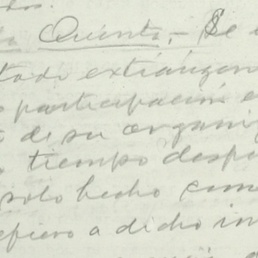 dos.
Quinto.- Se
tado extranger
participación e
de su organi
tiempo desp
solo hecho com
refiero a dicho in